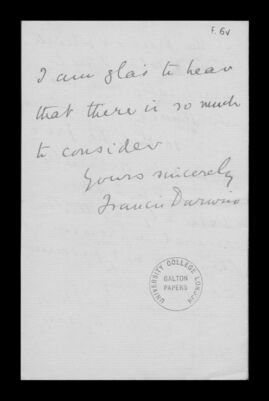 f. 6v
I am glad to hear
that there is so much
to consider
Yours sincerely
Francis Darwin
UNIVERSITY COLLEGE LONDON
GALTON
PAPERS